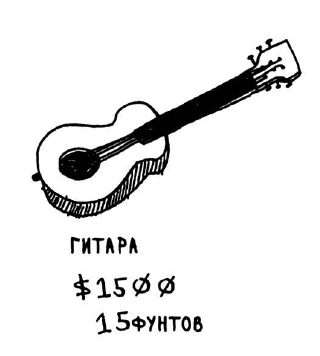 ГИТАРА
$1500
15ФУНТОВ